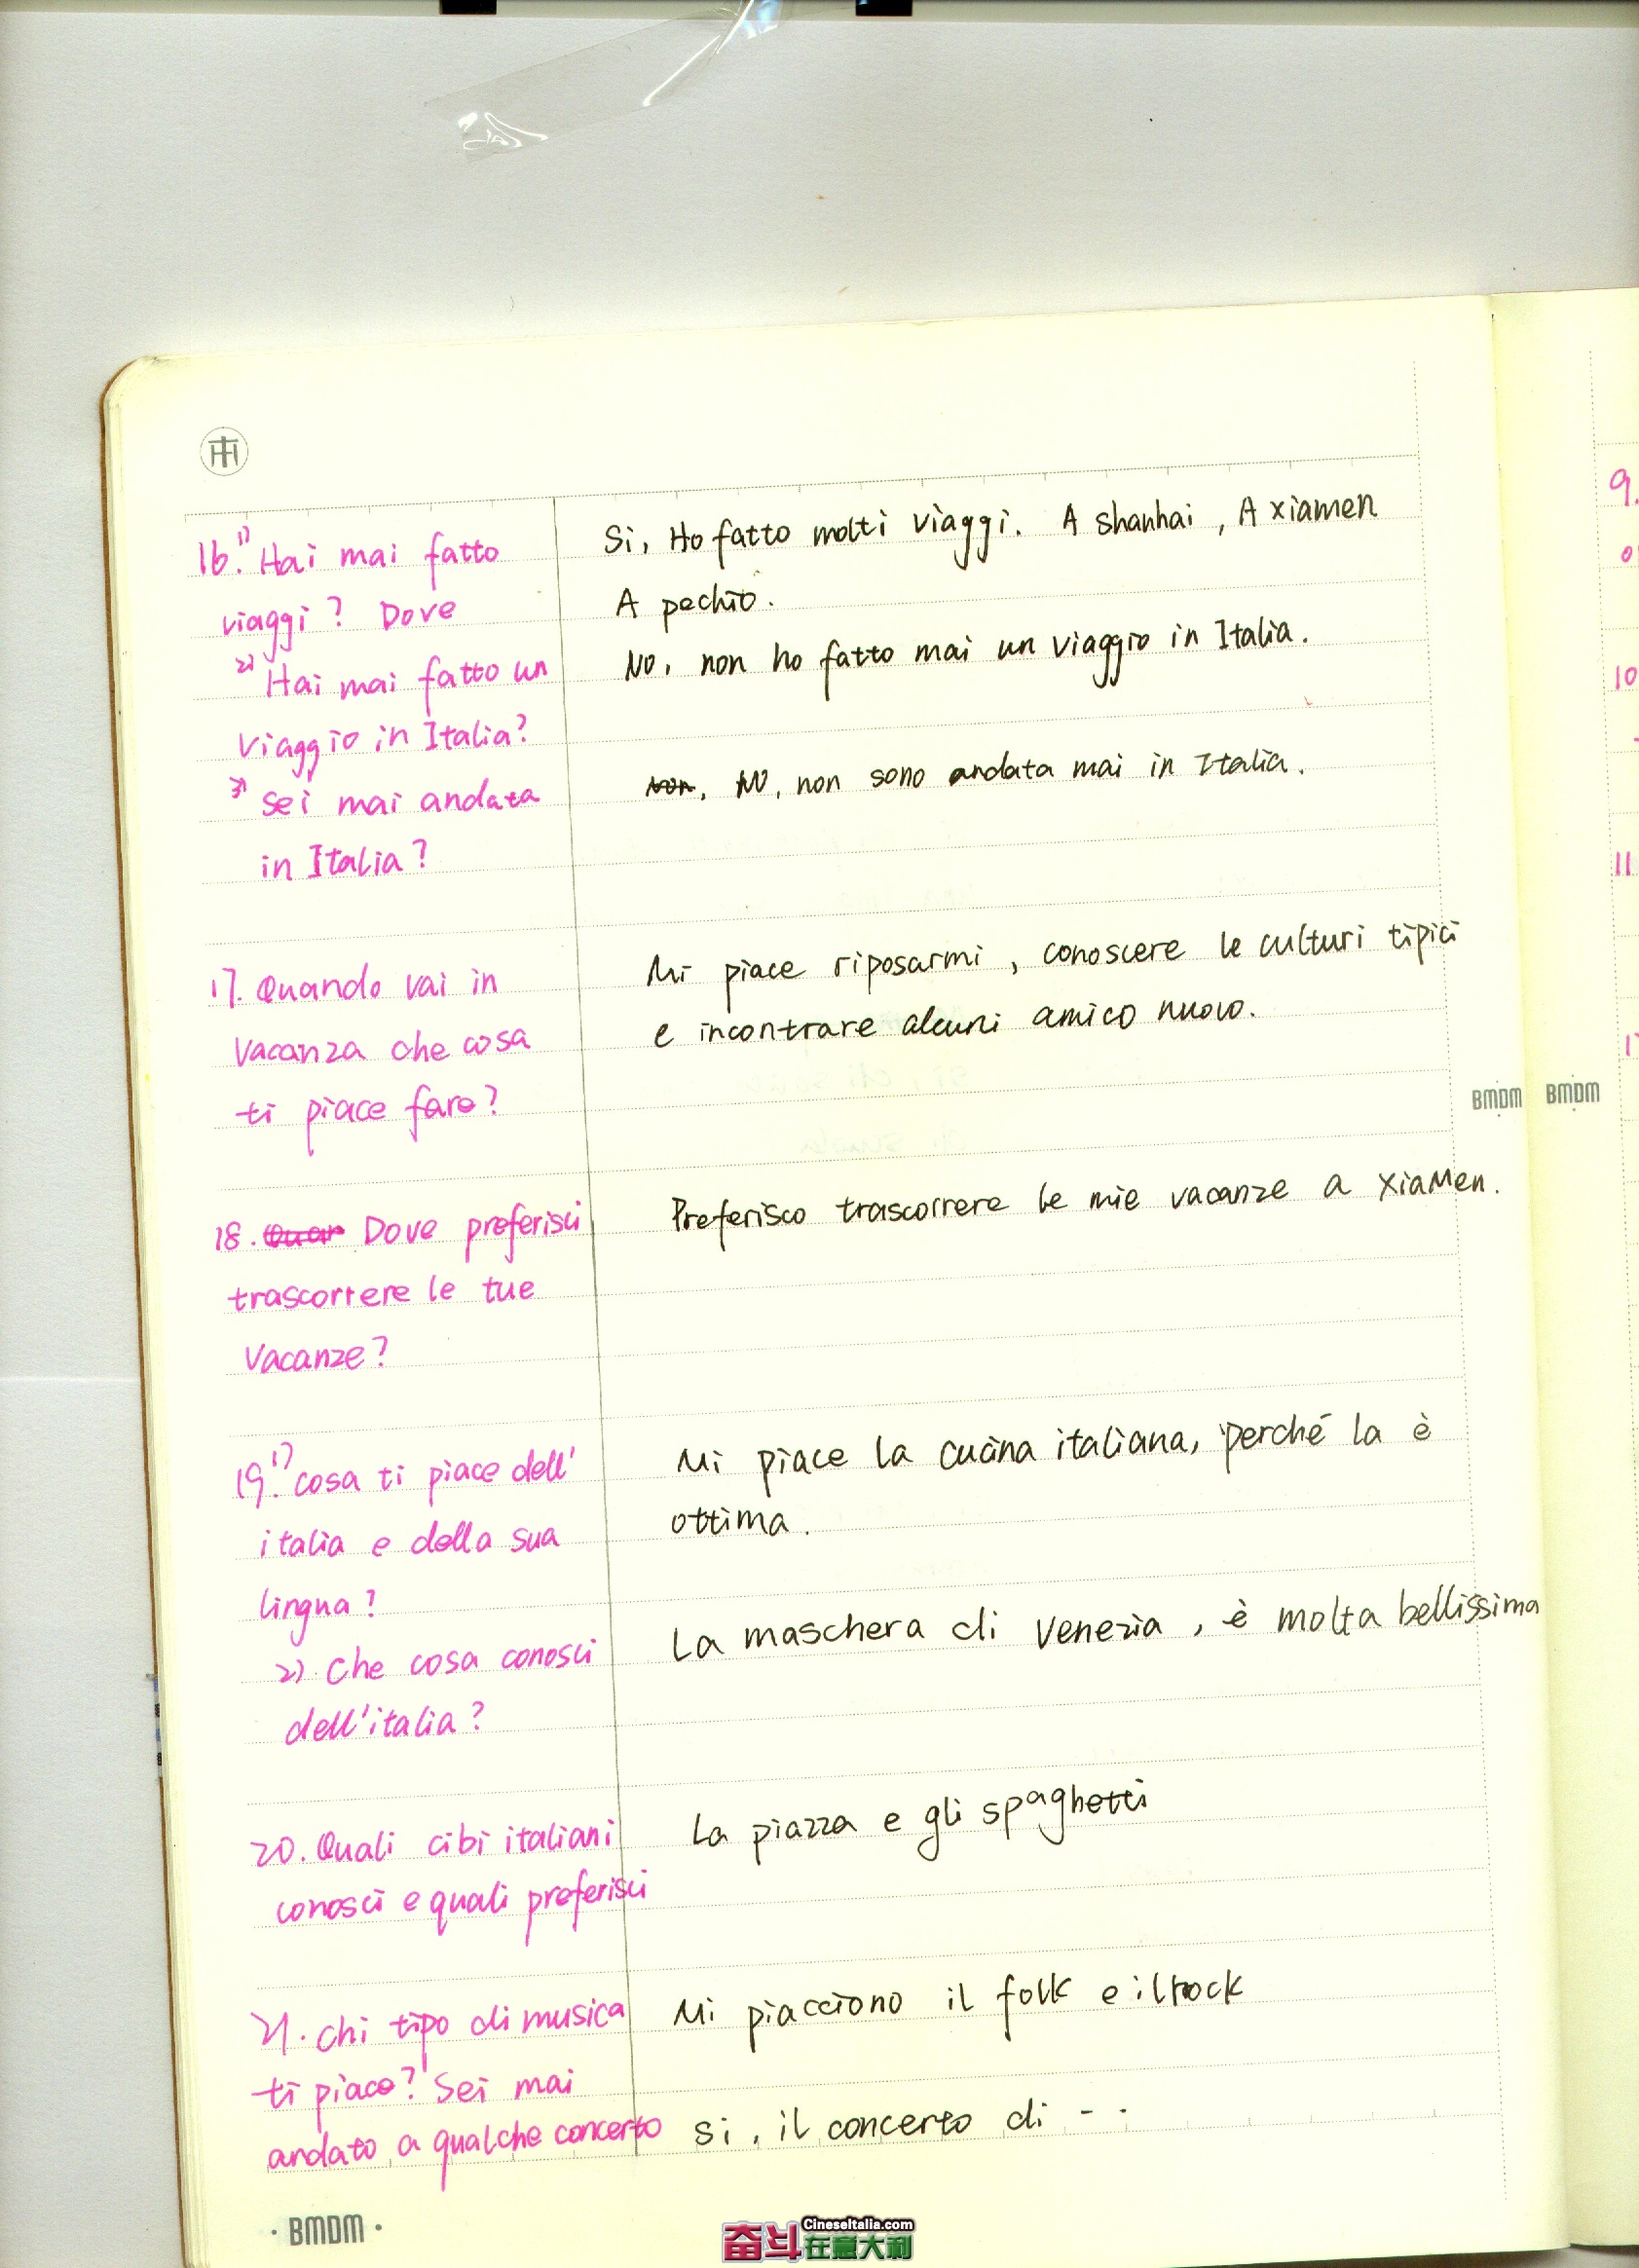 16. 1) Hai mai fatto
viaggi? Dove
2) Hai mai fatto un
viaggio in Italia?
3) Sei mai andata
in Italia?
Si, Ho fatto molti viaggi. A shanhai, A xiamen
A pechio.
No, non ho fatto mai un viaggio in Italia.
Non, NO, non sono andata mai in Italia.
17. Quando vai in
vacanza che cosa
ti piace fare?
Mi piace riposarmi, conoscere le culturi tipici
e incontrare alcuni amico nuovo.
18. Quan Dove preferisci
trascorrere le tue
vacanze?
Preferisco trascorrere le mie vacanze a XiaMen.
19. 1) cosa ti piace dell'
italia e della sua
lingua?
2) Che cosa conosci
dell'italia?
Mi piace la cucina italiana, perché la è
ottima.
La maschera di Venezia, è molta bellissima
20. Quali cibi italiani
conosci e quali preferisci
La piazza e gli spaghetti
21. chi tipo di musica
ti piace? Sei mai
andato a qualche concerto
Mi piacciono il folk e il rock
si, il concerto di - -
9.
10
11
BMDM BMDM
· BMDM ·
CineseItalia.com
奋斗在意大利